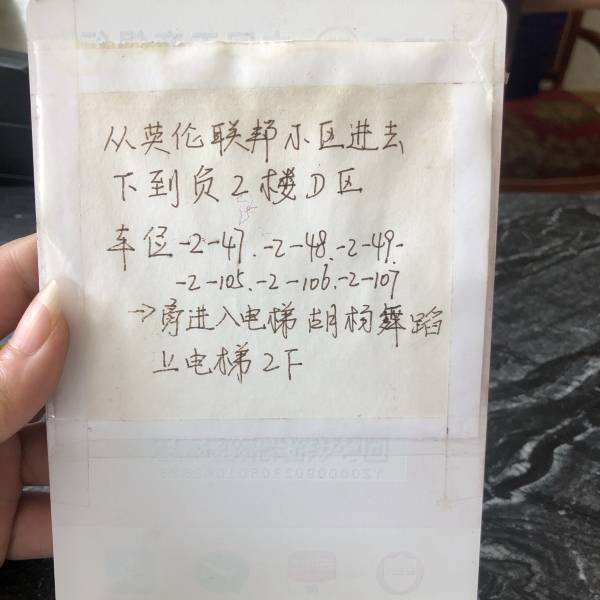 从英伦联邦小区进去
下到负2楼D区
车位-2-47.-2-48.-2-49.
-2-105.-2-106.-2-107
进入电梯胡杨舞蹈
上电梯2F